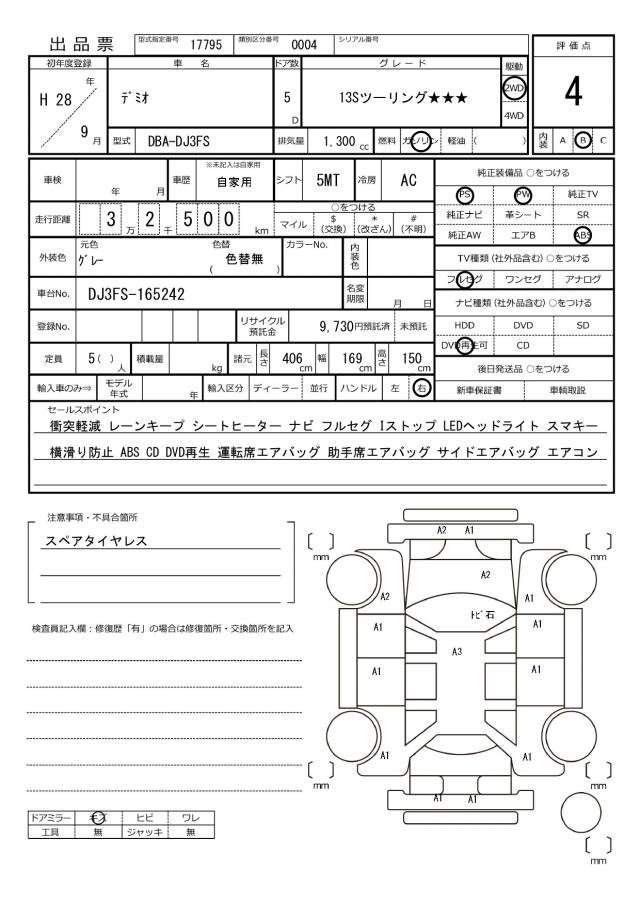 出品票 型式指定番号 17795 類別区分番号 0004 シリアル番号
評価点
4
初年度登録 車名 ドア数 グレード 駆動
H 28 年 9 月
デミオ
5 D
13Sツーリング★★★
2WD
4WD
型式 DBA-DJ3FS 排気量 1,300 cc 燃料 ガソリン 軽油 ( )
内装 A B C
車検 年 月 車歴 ※未記入は自家用 自家用 シフト 5MT 冷房 AC
走行距離 3 万 2 千 5 0 0 km
○をつける
マイル $ (交換) * (改ざん) # (不明)
外装色 元色 グレー 色替 ( 色替無 ) カラーNo. 内装色
車台No. DJ3FS-165242 名変期限 月 日
登録No. リサイクル預託金 9,730円預託済 未預託
定員 5 ( ) 人 積載量 kg 諸元 長さ 406 cm 幅 169 cm 高さ 150 cm
輸入車のみ⇒ モデル年式 年 輸入区分 ディーラー 並行 ハンドル 左 右
純正装備品 ○をつける
PS PW 純正TV
純正ナビ 革シート SR
純正AW エアB ABS
TV種類(社外品含む) ○をつける
フルセグ ワンセグ アナログ
ナビ種類(社外品含む) ○をつける
HDD DVD SD
DVD再生可 CD
後日発送品 ○をつける
新車保証書 車輌取説
セールスポイント
衝突軽減 レーンキープ シートヒーター ナビ フルセグ Iストップ LEDヘッドライト スマキー
横滑り防止 ABS CD DVD再生 運転席エアバッグ 助手席エアバッグ サイドエアバッグ エアコン
注意事項・不具合箇所
スペアタイヤレス
検査員記入欄：修復歴「有」の場合は修復箇所・交換箇所を記入
ドアミラー キズ ヒビ ワレ
工具 無 ジャッキ 無
A2 A1
mm mm
A2
A2 A1
トビ石
A1 A1
A3
A1 A1
A1 A1
mm mm
A1 A1
mm